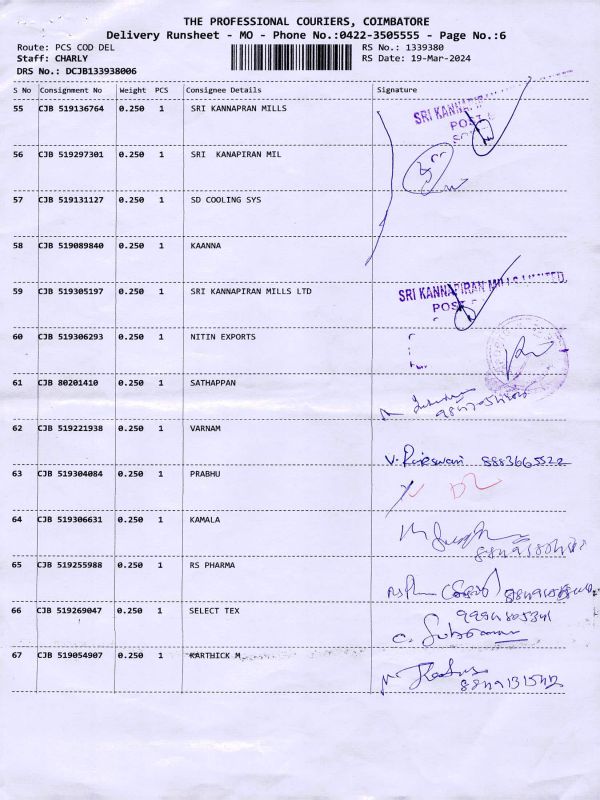 THE PROFESSIONAL COURIERS, COIMBATORE
Delivery Runsheet - MO - Phone No.:0422-3505555 - Page No.:6
Route: PCS COD DEL RS No.: 1339380
Staff: CHARLY RS Date: 19-Mar-2024
DRS No.: DCJB133938006
S No Consignment No Weight PCS Consignee Details Signature
55 CJB 519136764 0.250 1 SRI KANNAPRAN MILLS
SRI KANNA
POST
56 CJB 519297301 0.250 1 SRI KANAPIRAN MIL
57 CJB 519131127 0.250 1 SD COOLING SYS
58 CJB 519089840 0.250 1 KAANNA
59 CJB 519305197 0.250 1 SRI KANNAPIRAN MILLS LTD
SRI KANNAPIRAN MILLS LIMITED
POST
60 CJB 519306293 0.250 1 NITIN EXPORTS
61 CJB 80201410 0.250 1 SATHAPPAN
62 CJB 519221938 0.250 1 VARNAM
V. Rajeswari 8883665522
63 CJB 519304084 0.250 1 PRABHU
64 CJB 519306631 0.250 1 KAMALA
65 CJB 519255988 0.250 1 RS PHARMA
66 CJB 519269047 0.250 1 SELECT TEX
9994805341
67 CJB 519054907 0.250 1 KARTHICK M